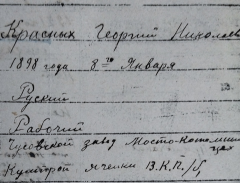 Красных Георгий Николаев
1898 года 8 го Января
Руский
Рабочий
Чусовской завод Мосто-Котельный
цех
Ячейки В.К.П./б,